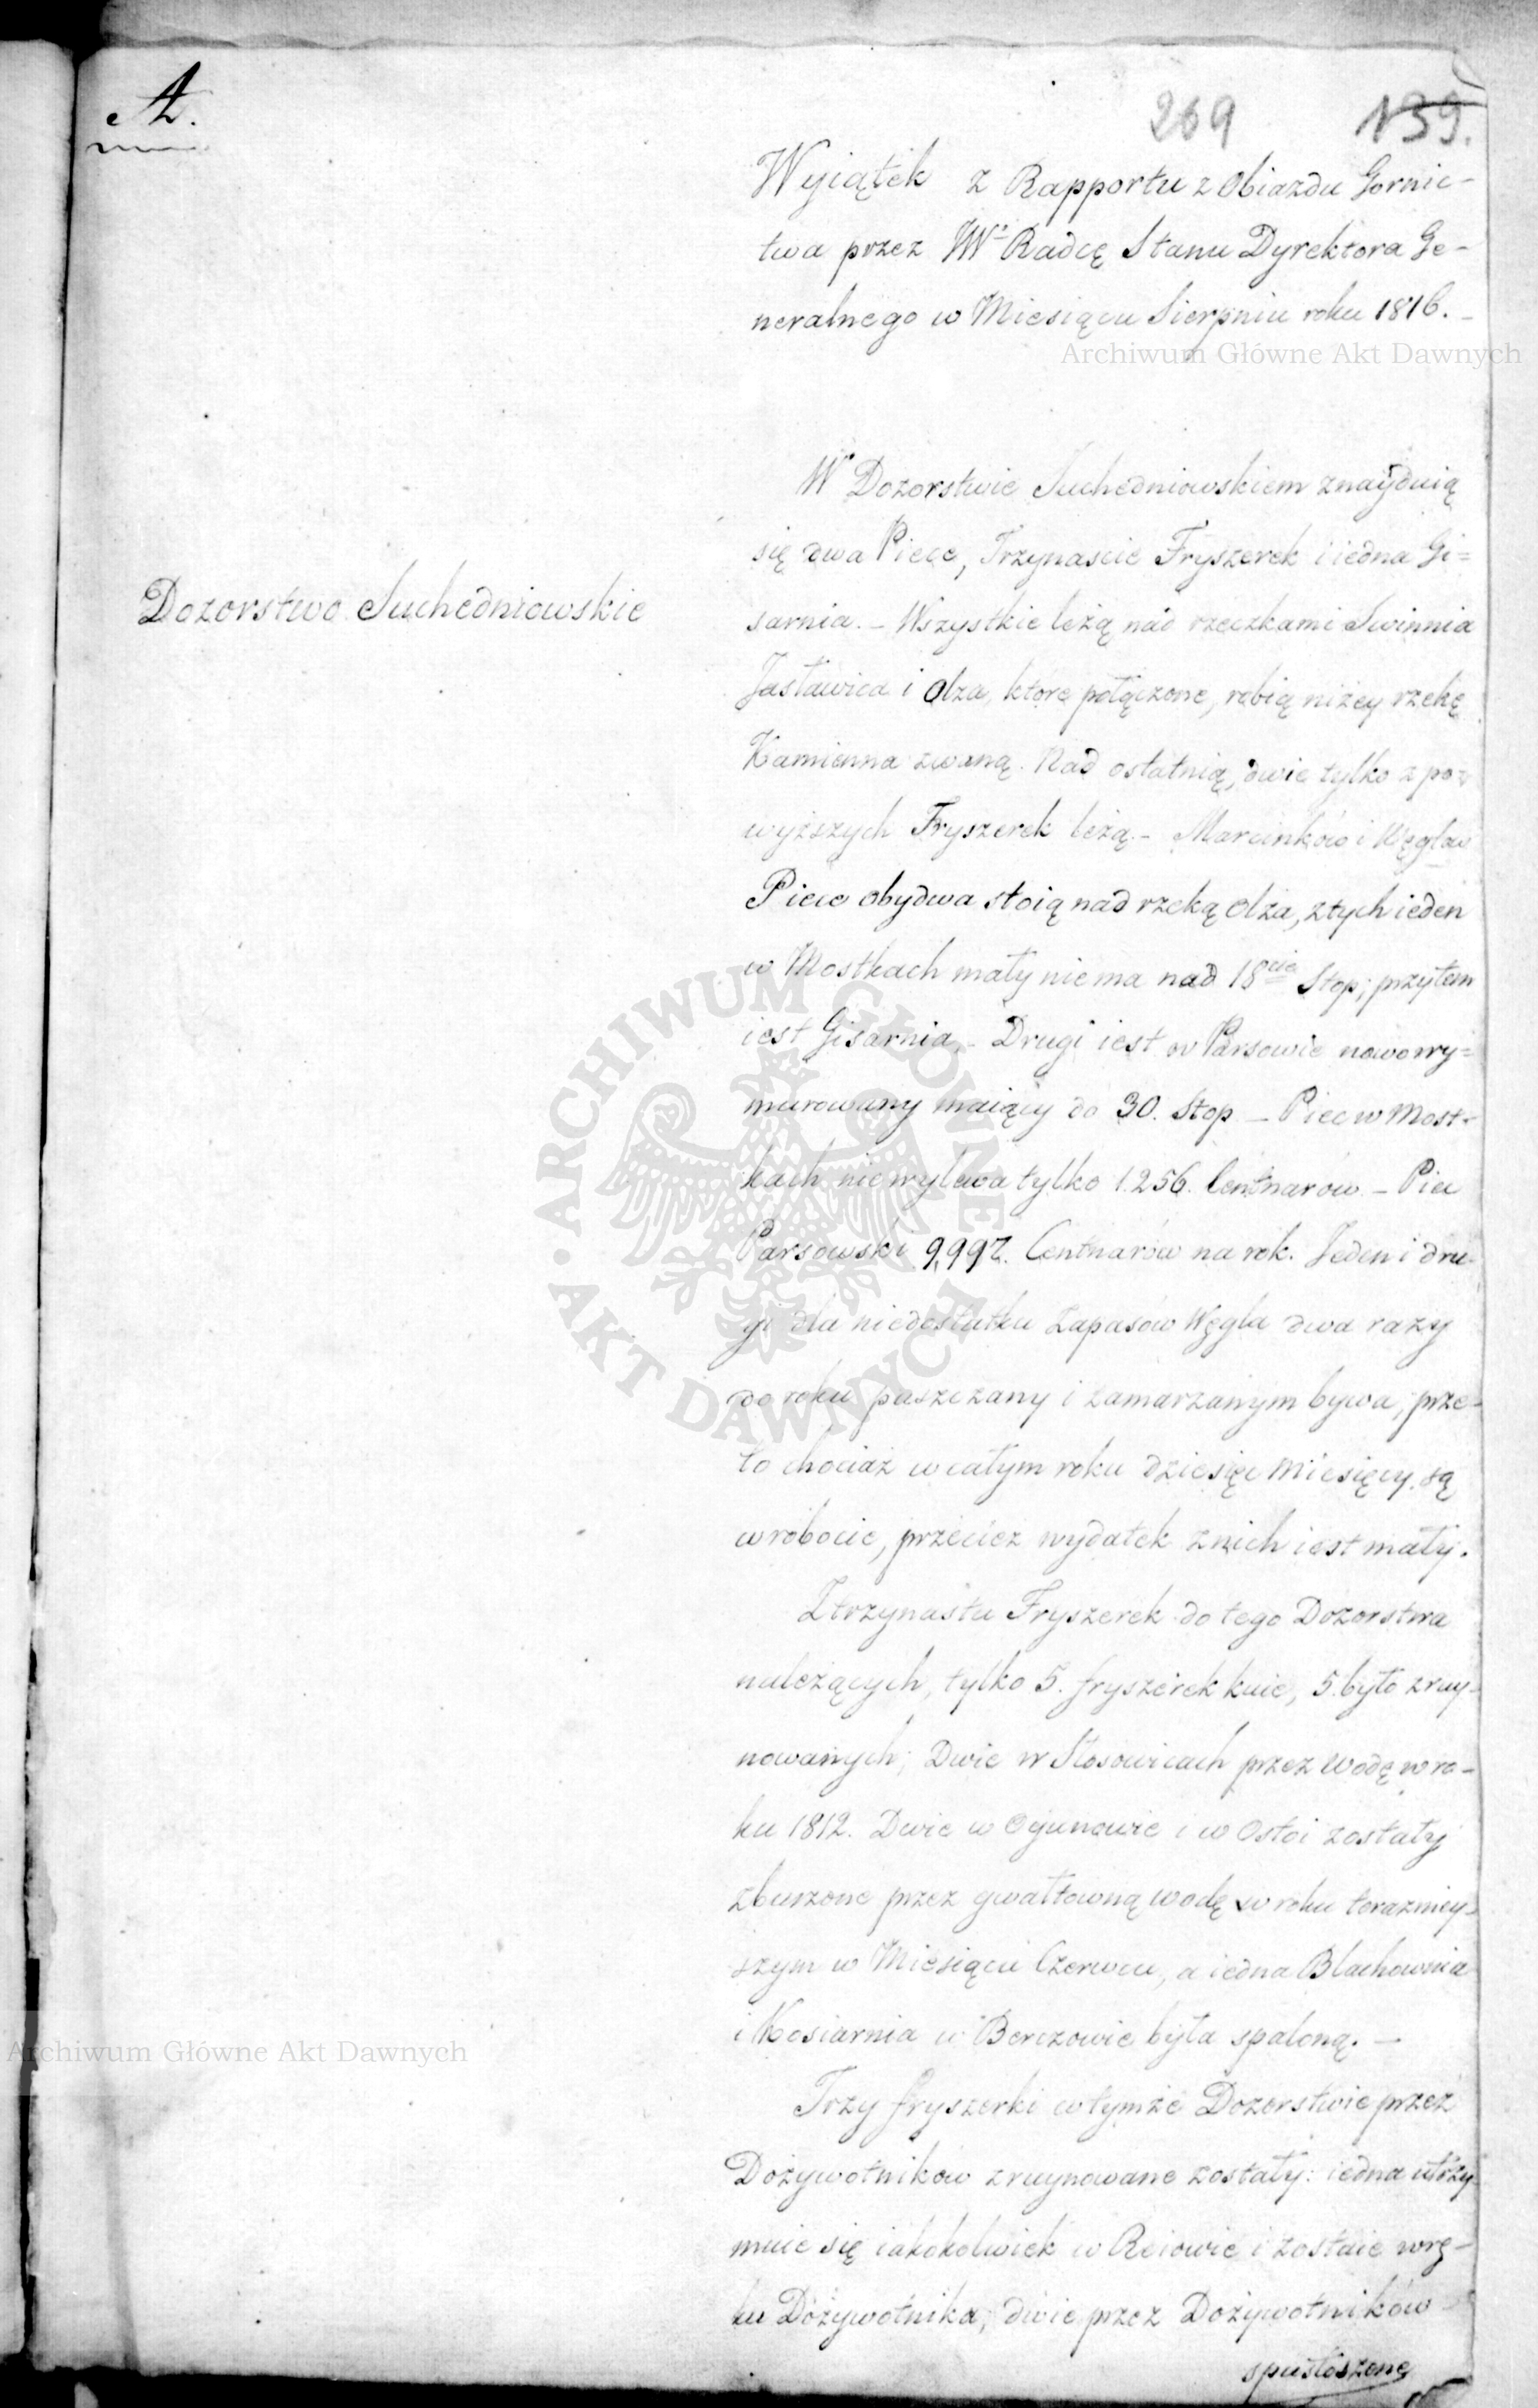 A.
269 139.
Wyiątek z Rapportu z Obiazdu Gornic-
twa przez W° Radcę Stanu Dyrektora Ge-
neralnego w Miesiącu Sierpniu roku 1816. -
Archiwum Główne Akt Dawnych
W Dozorstwie Suchedniowskiem znayduią
się dwa Piece, Trzynascie Fryszerek i iedna Gi=
Dozorstwo Suchedniowskie
sarnia. - Wszystkie leżą nad rzeczkami Swinnia
Jastawica i Olza, które połączone, robią niżey rzekę
Kamienna zwaną. Nad ostatnią, dwie tylko z po=
wyższych Fryszerek leżą. - Marcinków i Węglow
Piece obydwa stoią nad rzeką Olza, z tych ieden
w Mostkach mały nie ma nad 18cie Stop; przytem
iest Gisarnia, - Drugi iest w Parsowie nowo wy=
murowany maiący do 30. Stop - Piec w Most=
kach niewylewa tylko 1.256. Centnarów - Piec
Parsowski 9,997. Centnarów na rok. Jeden i dru-
gi dla niedostatku Zapasów Węgla dwa razy
do roku puszczany i zamarzanym bywa, prze-
to chociaż w całym roku dziesięć Miesięcy są
w robocie, przecież wydatek z nich iest mały.
Z trzynastu Fryszerek do tego Dozorstwa
należących, tylko 5. fryszerek kuie, 5. było zruy-
nowanych; Dwie w Stosowicach przez Wodę w ro-
ku 1812. Dwie w Ogunowie i w Ostoi zostały
zburzone przez gwałtowną wodę w roku terazniey-
szym w Miesiącu Czerwcu, a iedna Blachownia
i Kosiarnia w Berezowie była spaloną. -
Archiwum Główne Akt Dawnych
Trzy fryszerki w tymże Dozorstwie przez
Dożywotników zruynowane zostały: iedna utrzy-
muie się iakokolwiek w Reiowie i zostaie w rę-
ku Dożywotnika, dwie przez Dożywotników
spustoszone
ARCHIWUM GŁÓWNE
AKT DAWNYCH